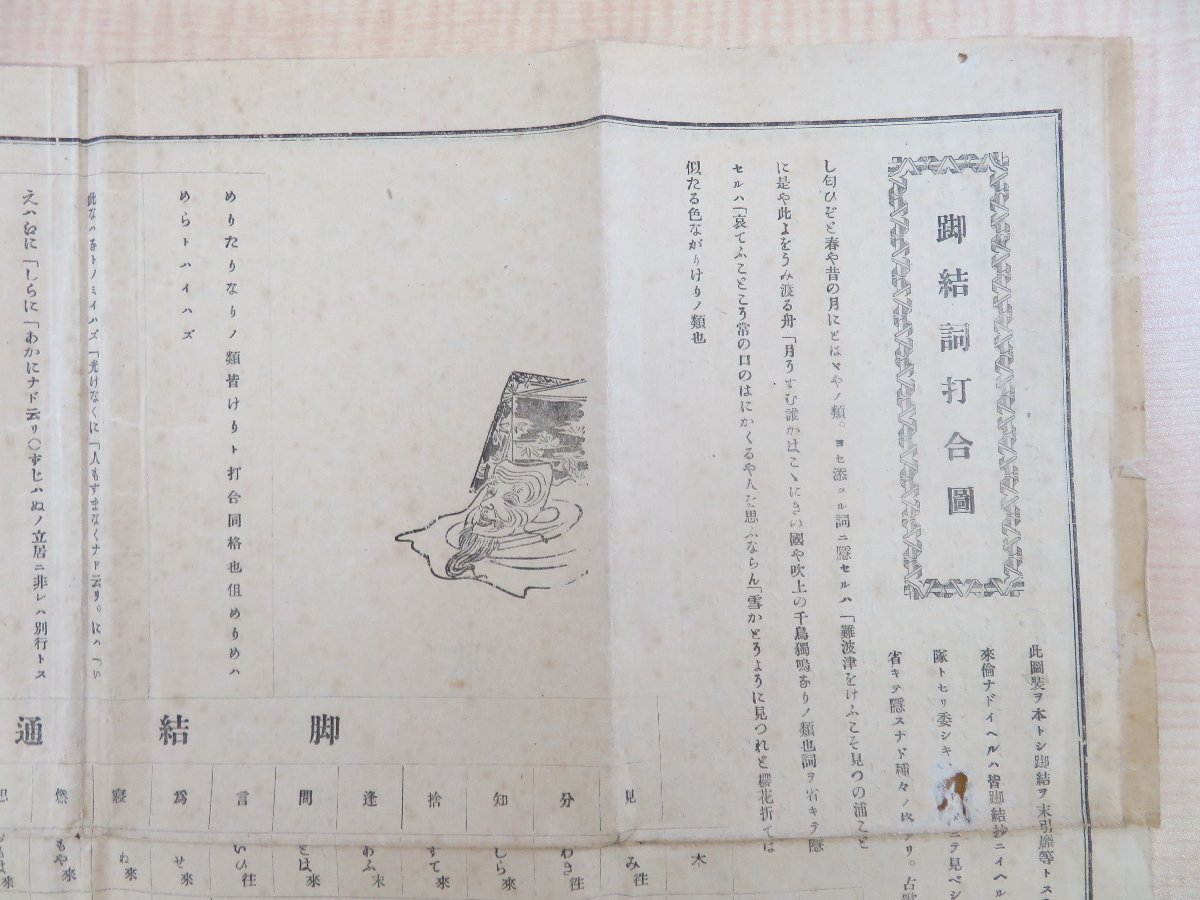 脚結詞打合圖
此圖裝ヲ本トシ脚結ヲ末引靡等トス
來倫ナドイヘルハ皆脚結抄ニイヘル
隊トセリ委シキ ニテ見ベシ
省キテ隱スナド種々ノ アリ。古
し匂ひぞと春や昔の月にとはゞやノ類。ヨセ添タル詞ニ隱セルハ「難波津をけふこそ見つの浦こと
に是や此よをうみ渡る舟「月ろすむ誰かはこゝにきの國や吹上の千鳥獨鳴なりノ類也詞ヲ省キテ隱
セルハ「哀てふことこう常の口のはにかくるや人を思ふならん「雪かとろように見つれと櫻花折ては
似たる色ながりけりノ類也
めりたりなりノ類皆けりト打合同格也伹めりめハ
めらトハイハズ
此なハ なトノミイハズ「光けなくに「人もすまなくナド云リ。にハ「い
えハ に「しらに「あかにナド云リ〇ずじハぬノ立居ニ非レハ別行トス
脚結通
見 分 知 捨 逢 問 言 爲 寢 燃
木
み往
わき往
しら來
すて來
あふ末
とは來
いひ往
せ來
ね來
もや來